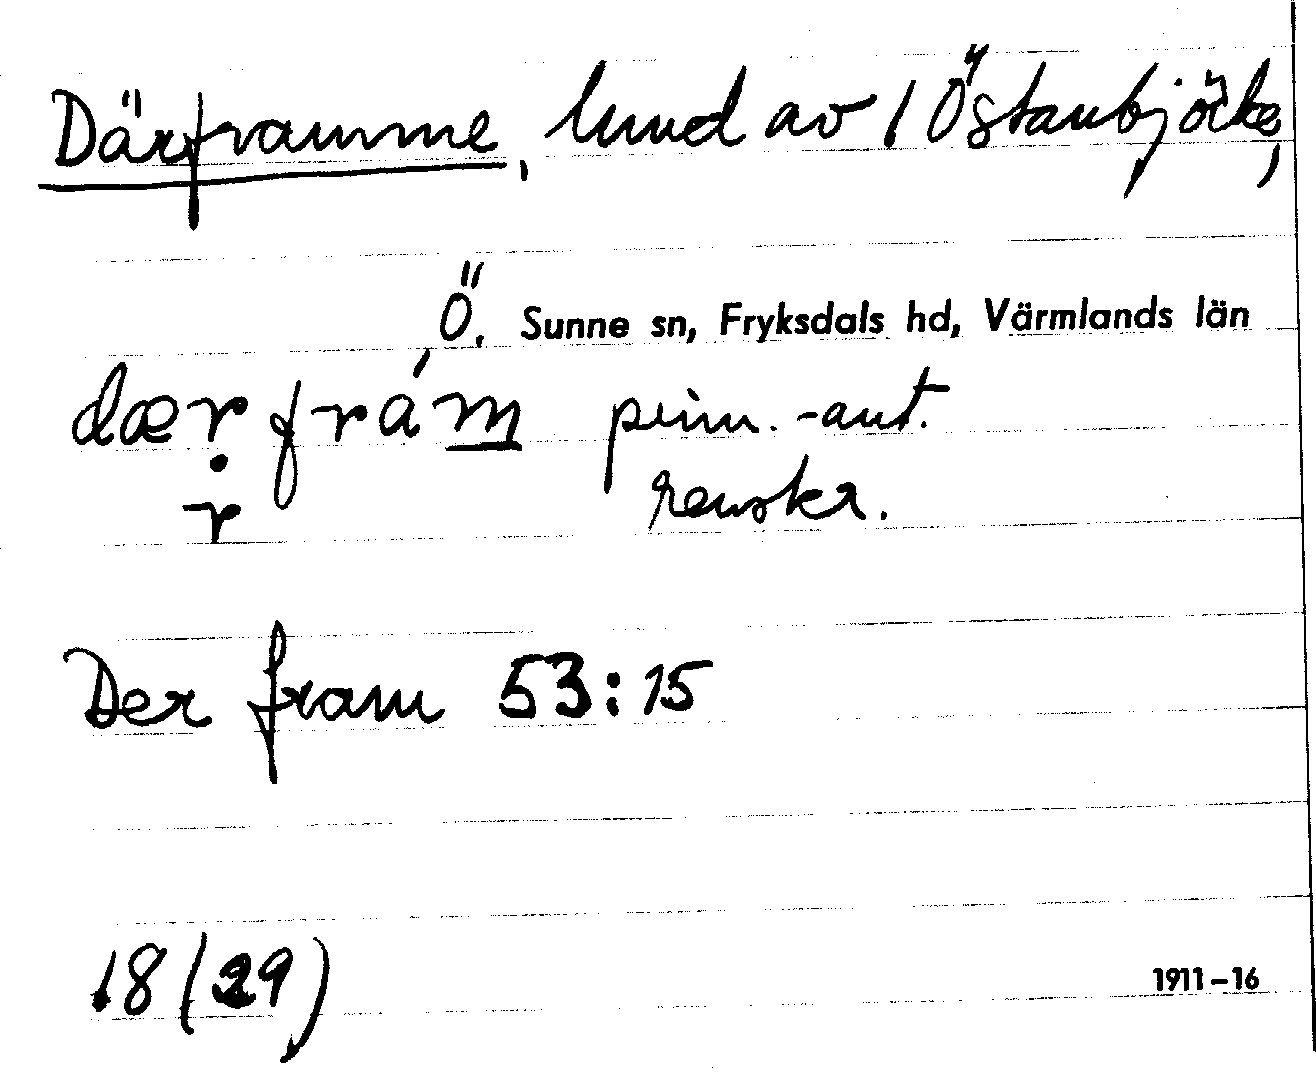 Därframme, lund av 1 Östanbjörke,
Ö. Sunne sn, Fryksdals hd, Värmlands län
dær fra´m prim. -aut.
ṙ renskr.
Der fram 53:15
18 (29)
1911–16